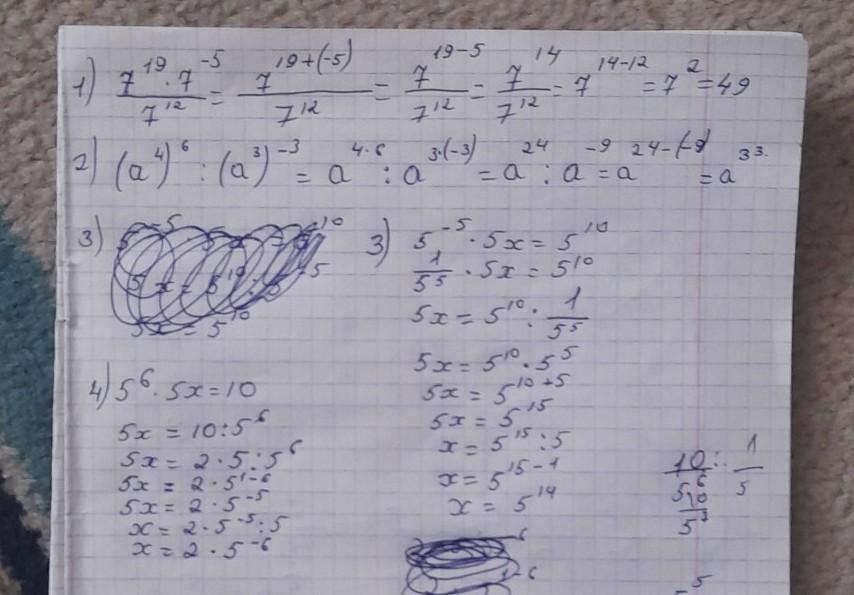 1) (7¹⁹ · 7⁻⁵)/7¹² = 7¹⁹⁺⁽⁻⁵⁾/7¹² = 7¹⁹⁻⁵/7¹² = 7¹⁴/7¹² = 7¹⁴⁻¹² = 7² = 49
2) (a⁴)⁶ : (a³)⁻³ = a⁴·⁶ : a³·⁽⁻³⁾ = a²⁴ : a⁻⁹ = a²⁴⁻⁽⁻⁹⁾ = a³³.
3)
5x = 5¹⁰
3) 5⁻⁵ · 5x = 5¹⁰
1/5⁵ · 5x = 5¹⁰
5x = 5¹⁰ : 1/5⁵
5x = 5¹⁰ · 5⁵
5x = 5¹⁰⁺⁵
5x = 5¹⁵
x = 5¹⁵ : 5
x = 5¹⁵⁻¹
x = 5¹⁴
4) 5⁶ · 5x = 10
5x = 10 : 5⁶
5x = 2 · 5 : 5⁶
5x = 2 · 5¹⁻⁶
5x = 2 · 5⁻⁵
x = 2 · 5⁻⁵ : 5
x = 2 · 5⁻⁶